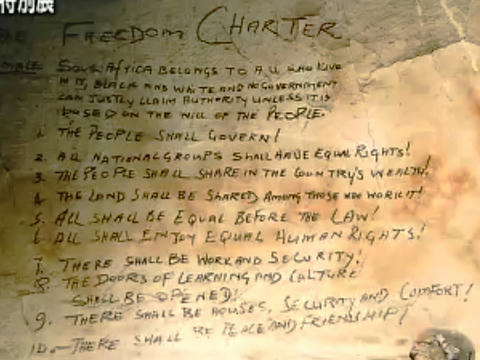 特別展
THE FREEDOM CHARTER
SOUTH AFRICA BELONGS TO ALL WHO LIVE
IN IT, BLACK AND WHITE AND NO GOVERNMENT
CAN JUSTLY CLAIM AUTHORITY UNLESS IT IS
BASED ON THE WILL OF THE PEOPLE.
1. THE PEOPLE SHALL GOVERN!
2. ALL NATIONAL GROUPS SHALL HAVE EQUAL RIGHTS!
3. THE PEOPLE SHALL SHARE IN THE COUNTRY'S WEALTH!
4. THE LAND SHALL BE SHARED AMONG THOSE WHO WORK IT!
5. ALL SHALL BE EQUAL BEFORE THE LAW!
6. ALL SHALL ENJOY EQUAL HUMAN RIGHTS!
7. THERE SHALL BE WORK AND SECURITY!
8. THE DOORS OF LEARNING AND CULTURE
SHALL BE OPENED!
9. THERE SHALL BE HOUSES, SECURITY AND COMFORT!
10. THERE SHALL BE PEACE AND FRIENDSHIP!